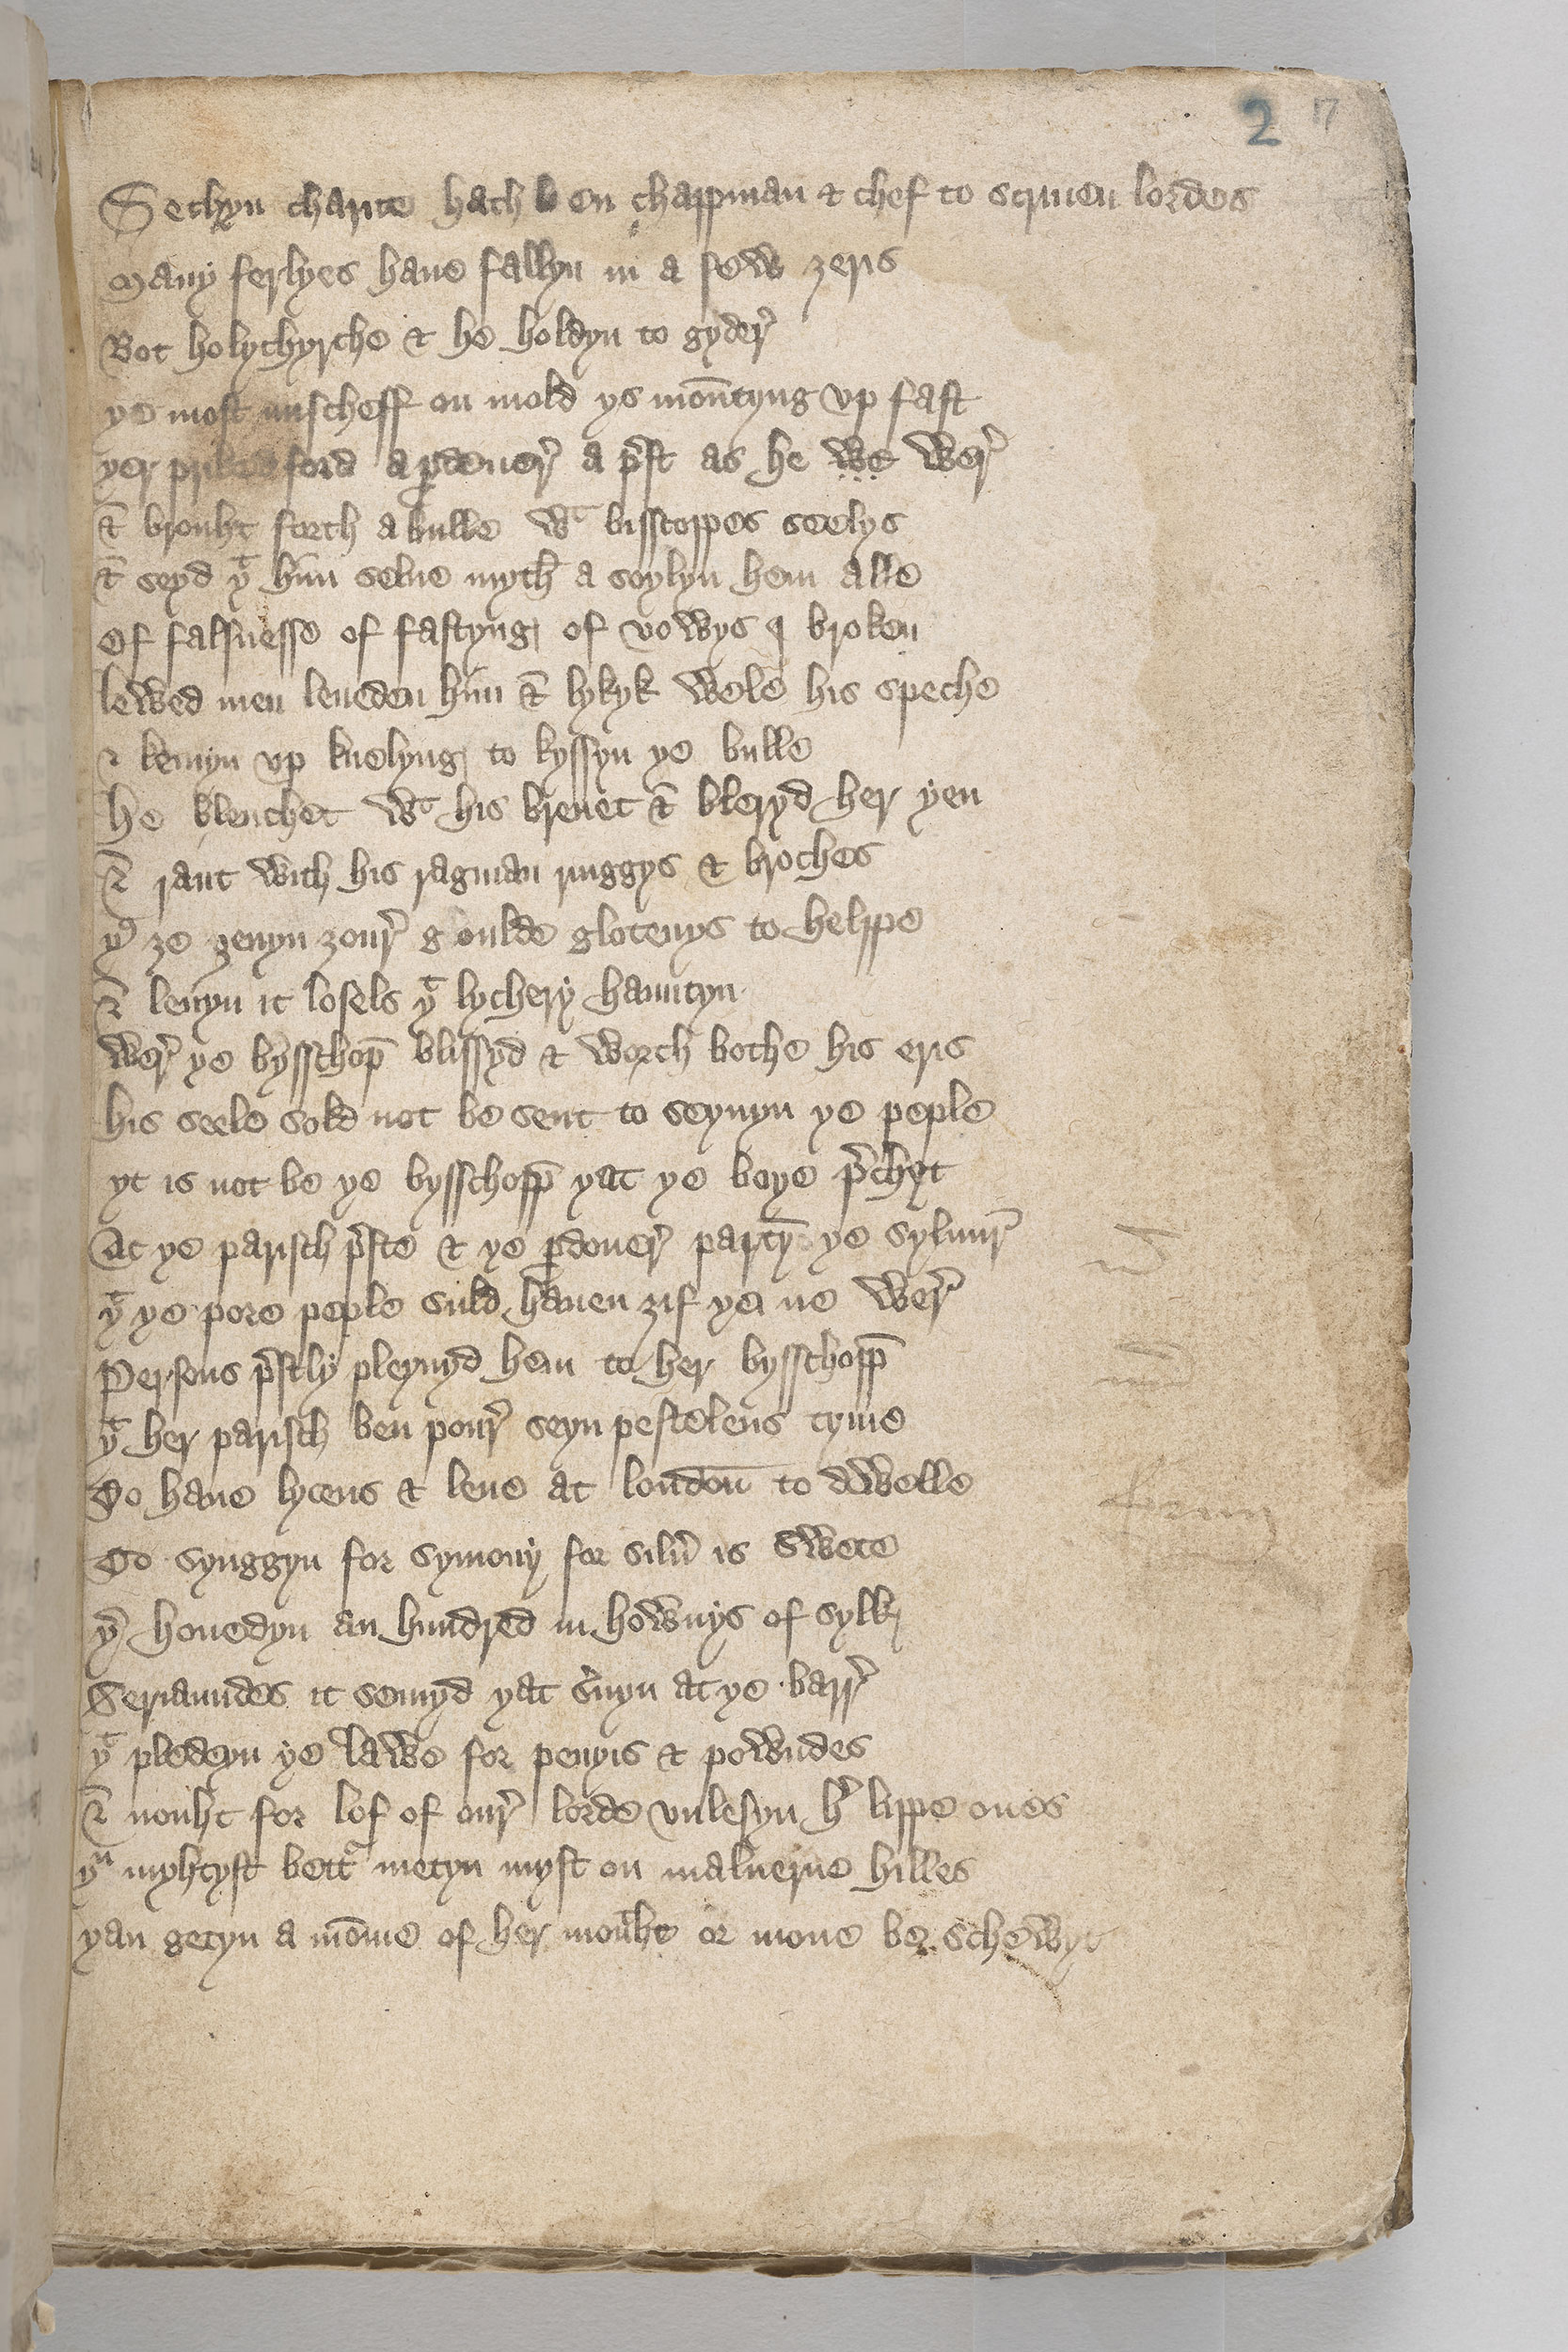 2 17
Sethyn charite hath b en chappman & chef to scriuen lordes
Many ferlyes haue fallyn in a few zeris
Bot holychyrche & he holdyn to gyder̛
ye most mischeff on mold ys mou̅tyng vp fast
yer ford a ꝑdener̛ a p̛st as he we wer̛
& brouht forth a bulle wᵗ bisscoppes seelys
& seyd yᵗ him selue myth a soylyn hem alle
Of falsnesse of fastyng of vowys I broken
lewed men leueden him & lykyk wele his speche
& kemyn vp knelyng to kyssyn ye bulle
He blenchet wᵗ his breuet & bleryd her yen
& raut with his ragman ringgys & broches
yᵘ ze zeuyn zour̛ g oulde glotenys to helppe
& leuyn it losels yᵗ lychery hauntyn
Wer̛ ye bysschop̅ blissyd & worth bothe his eris
his seele sold not be sent to seynyn ye peple
yt is not be ye bysschopp̅ yat ye boye p̛chet
At ye parisch p̛ste & ye ꝑdoner̛ party̅ ye syluur̛
yᵗ ye pore peple suld hauen zif yei ne wer̛
Persons p̛stly pleynyd hem to her bysschopp̅
yᵗ her parisch ben pour̛ seyn pestelens tyme
To haue lycens & leue at londou̅ to dwelle
To synggyn for symony for silư is swete
y̛ houedyn an hundred in hownys of sylk
Seriaundes it semyd yat s̛uyn at ye barr̛
yᵗ pledeyn ye lawe for penyis & powndes
& nouht for lof of our̛ lorde vnlesyn h̛ lippe ones
yᵘ myhtyst bettᵃ metyn myst on maluerne hilles
yan getyn a mo̅me of her mouht or mone be schewyt